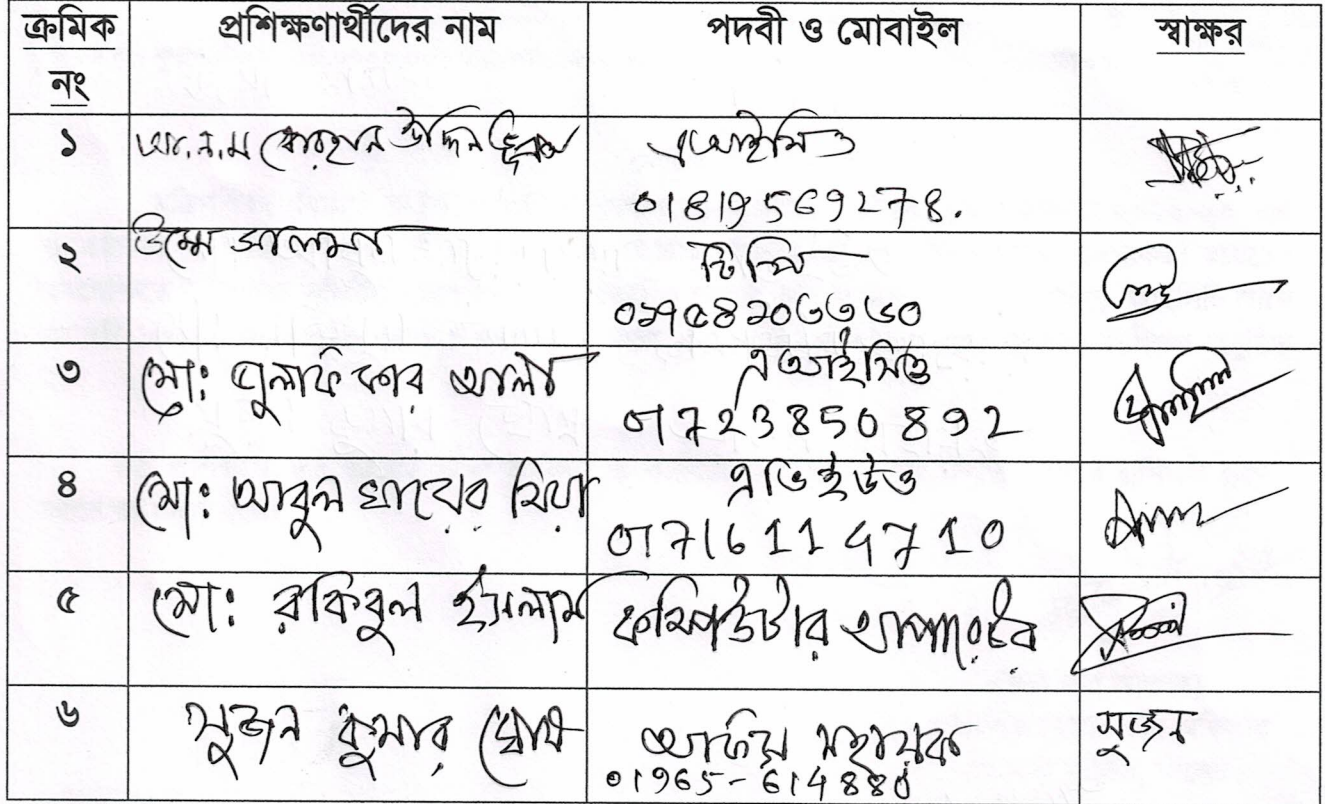 ক্রমিক নং প্রশিক্ষণার্থীদের নাম পদবী ও মোবাইল স্বাক্ষর
১ আ.ন.ম বোরহান উদ্দিন এআইসিও
01819569278.
২ উম্মে সালমা টিসি
৩ মো: যুলফিকার আলী এআইসিও
01723850892
৪ মো: আবুল খায়ের মিয়া এভিইউও
01716114710
৫ মো: রকিবুল ইসলাম কম্পিউটার অপারেটর
৬ সুজন কুমার ঘোষ অফিস সহায়ক সুজন
01965-614880